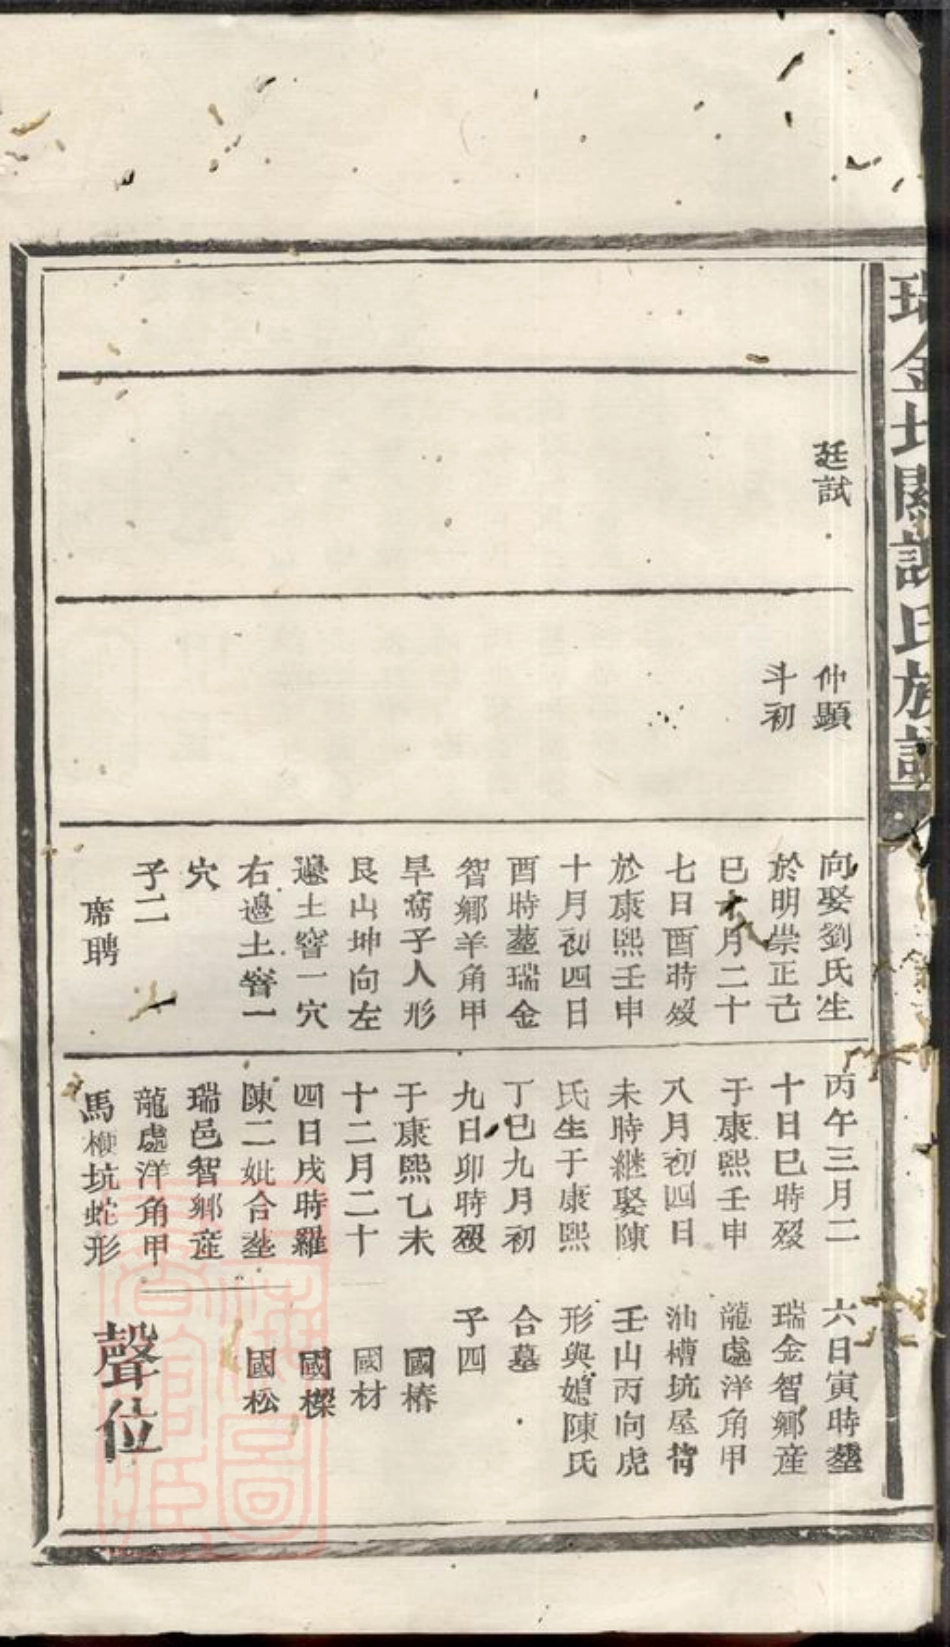 瑞金
氏族譜
廷試
仲顯
斗初
向娶劉氏生
於明崇正己
巳十月二十
七日酉時歿
於康熙壬申
十月初四日
酉時塟瑞金
智鄉羊角甲
旱窩子人形
艮山坤向左
邊土窖一穴
右邊土窖一
穴
子二
席聘
丙午三月二
十日巳時歿
于康熙壬申
八月初四日
未時継娶陳
氏生于康熙
丁巳九月初
九日卯時歿
于康熙乙未
十二月二十
四日戌時羅
陳二妣合塟
瑞邑智鄉産
龍處洋角甲
馬 坑蛇形
六日寅時塟
瑞金智鄉産
龍處洋角甲
油槽坑屋背
壬山丙向虎
形與媳陳氏
合墓
子四
國椿
國材
國樑
國松
聲位